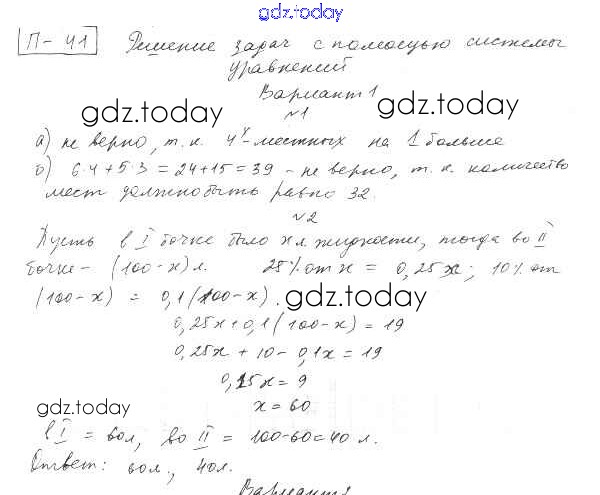 gdz.today
П-41 Решение задач с помощью системы
уравнений
Вариант 1
gdz.today gdz.today
№1
а) не верно, т.к. 4х-местных на 1 больше
б) 6·4+5·3=24+15=39 - не верно, т.к. количество
мест должно быть равно 32.
№2
Пусть в I бочке было x л жидкости, тогда во II
бочке - (100-x) л. 25% от x = 0,25x; 10% от
(100-x) = 0,1(100-x).
gdz.today
0,25x+0,1(100-x)=19
0,25x+10-0,1x=19
0,15x=9
x=60
gdz.today
в I = 60л, во II = 100-60=40 л.
Ответ: 60л., 40л.
Вариант